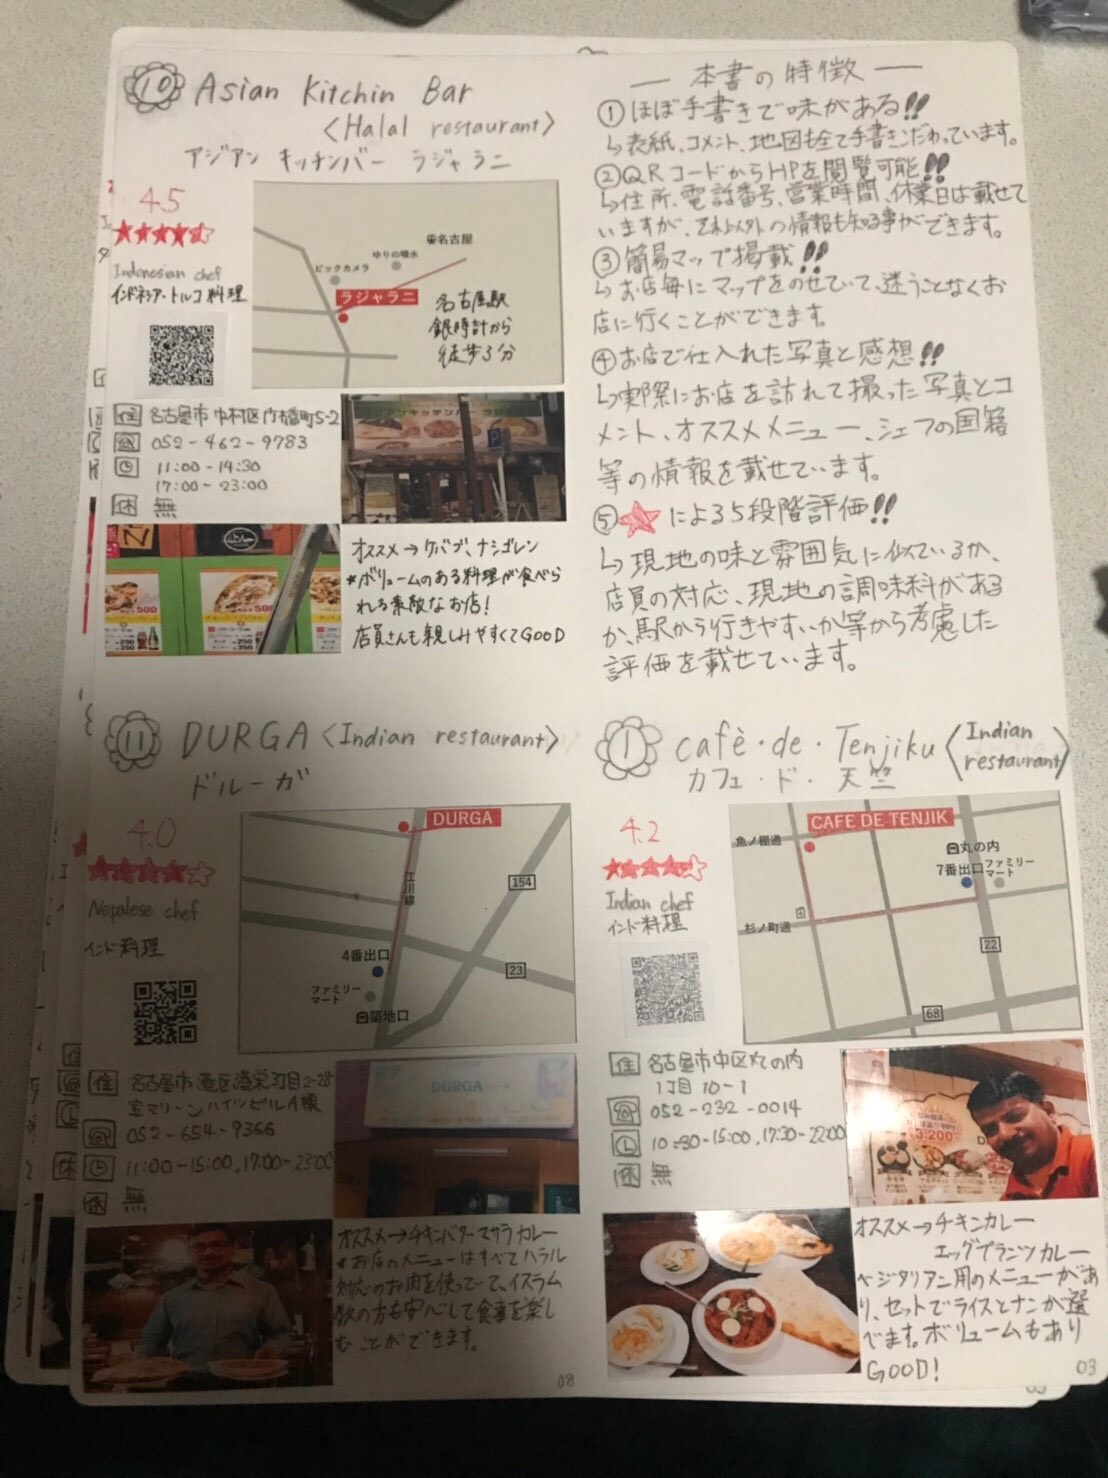 10 Asian Kitchin Bar
<Halal restaurant>
アジアン キッチンバー ラジャラニ
4.5
Indonesian chef
インドネシア・トルコ料理
名古屋
ゆりの噴水
ビックカメラ
ラジャラニ
名古屋駅
銀時計から
徒歩3分
住 名古屋市中村区 椿町5-2
052-462-9783
11:00-14:30
17:00-23:00
休 無
500
オススメ→ケバブ、ナシゴレン
★ボリュームのある料理が食べら
れる素敵なお店!
店員さんも親しみやすくてGOOD
— 本書の特徴 —
① ほぼ手書きで味がある!!
↳表紙、コメント、地図も全て手書きこだわっています。
②QRコードからHPを閲覧可能!!
↳住所、電話番号、営業時間、休業日は載せて
いますが、それ以外の情報も知る事ができます。
③簡易マップ掲載!!
↳お店毎にマップをのせていて、迷うことなくお
店に行くことができます。
④お店で仕入れた写真と感想!!
↳実際にお店を訪れて撮った写真とコ
メント、オススメメニュー、シェフの国籍
等の情報を載せています。
⑤★による5段階評価!!
↳現地の味と雰囲気に似ているか、
店員の対応、現地の調味料がある
か、駅から行きやすいか等から考慮した
評価を載せています。
11 DURGA <Indian restaurant>
ドルーガ
4.0
Nepalese chef
インド料理
DURGA
江川線
154
4番出口
23
ファミリー
マート
築地口
住 名古屋市港区港栄3丁目2-28
宝マリーンハイツビルA棟
052-654-9366
11:00-15:00, 17:00-23:00
休 無
DURGA
オススメ→チキンバターマサラカレー
★お店のメニューはすべてハラル
対応のお肉を使っていて、イスラム
教の方も安心して食事を楽し
むことができます。
08
1 cafè・de・Tenjiku <Indian
restaurant>
カフェ・ド・天竺
4.2
Indian chef
インド料理
CAFE DE TENJIK
魚ノ棚通
丸の内
7番出口
ファミリー
マート
杉ノ町通
22
68
住 名古屋市中区丸の内
1丁目10-1
052-232-0014
10:30-15:00, 17:30-22:00
休 無
3,200
オススメ→チキンカレー
エッグプランツカレー
ベジタリアン用のメニューがあ
り、セットでライスとナンが選
べます。ボリュームもあり
GOOD!
03